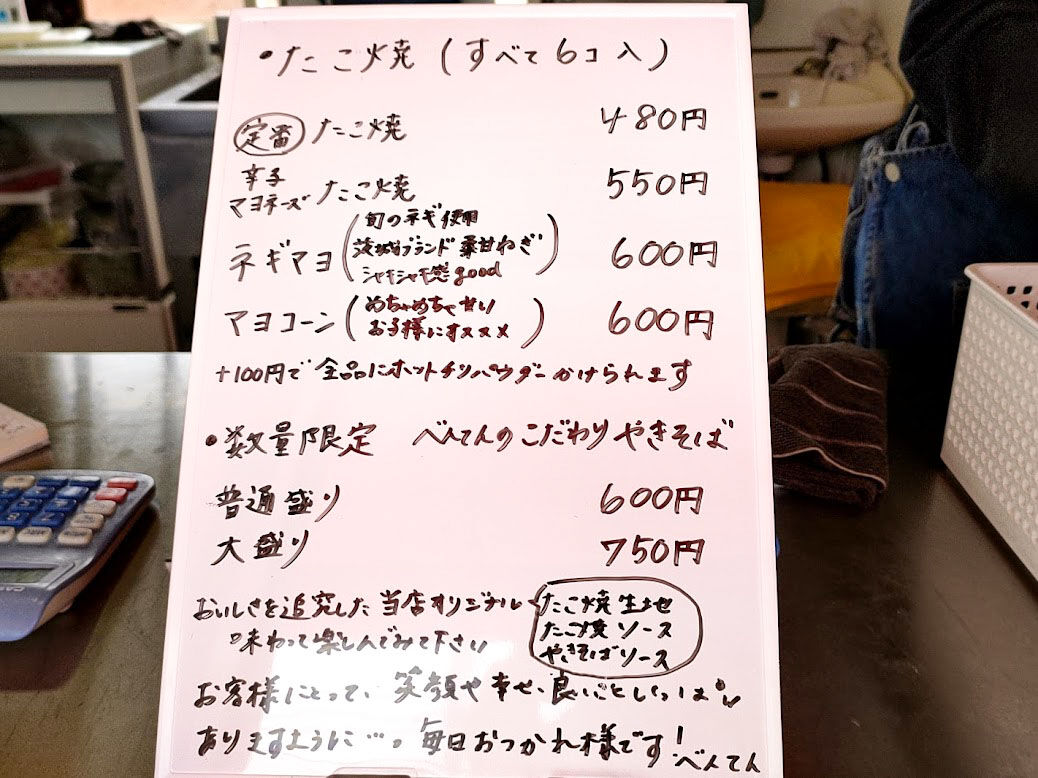 ・たこ焼(すべて6コ入)
定番 たこ焼 480円
辛子マヨネーズ たこ焼 550円
ネギマヨ(旬のネギ使用 茨城ブランド 夢甘ねぎ シャキシャキ感good) 600円
マヨコーン(めちゃめちゃ甘い お子様にオススメ) 600円
+100円で全品にホットチリパウダーかけられます
・数量限定 べんてんのこだわりやきそば
普通盛り 600円
大盛り 750円
おいしさを追究した当店オリジナル たこ焼生地 たこ焼ソース やきそばソース
味わって楽しんでみて下さい
お客様にとって、笑顔や幸せ、良いことしいっぱい
ありますように…。毎日おつかれ様です! べんてん